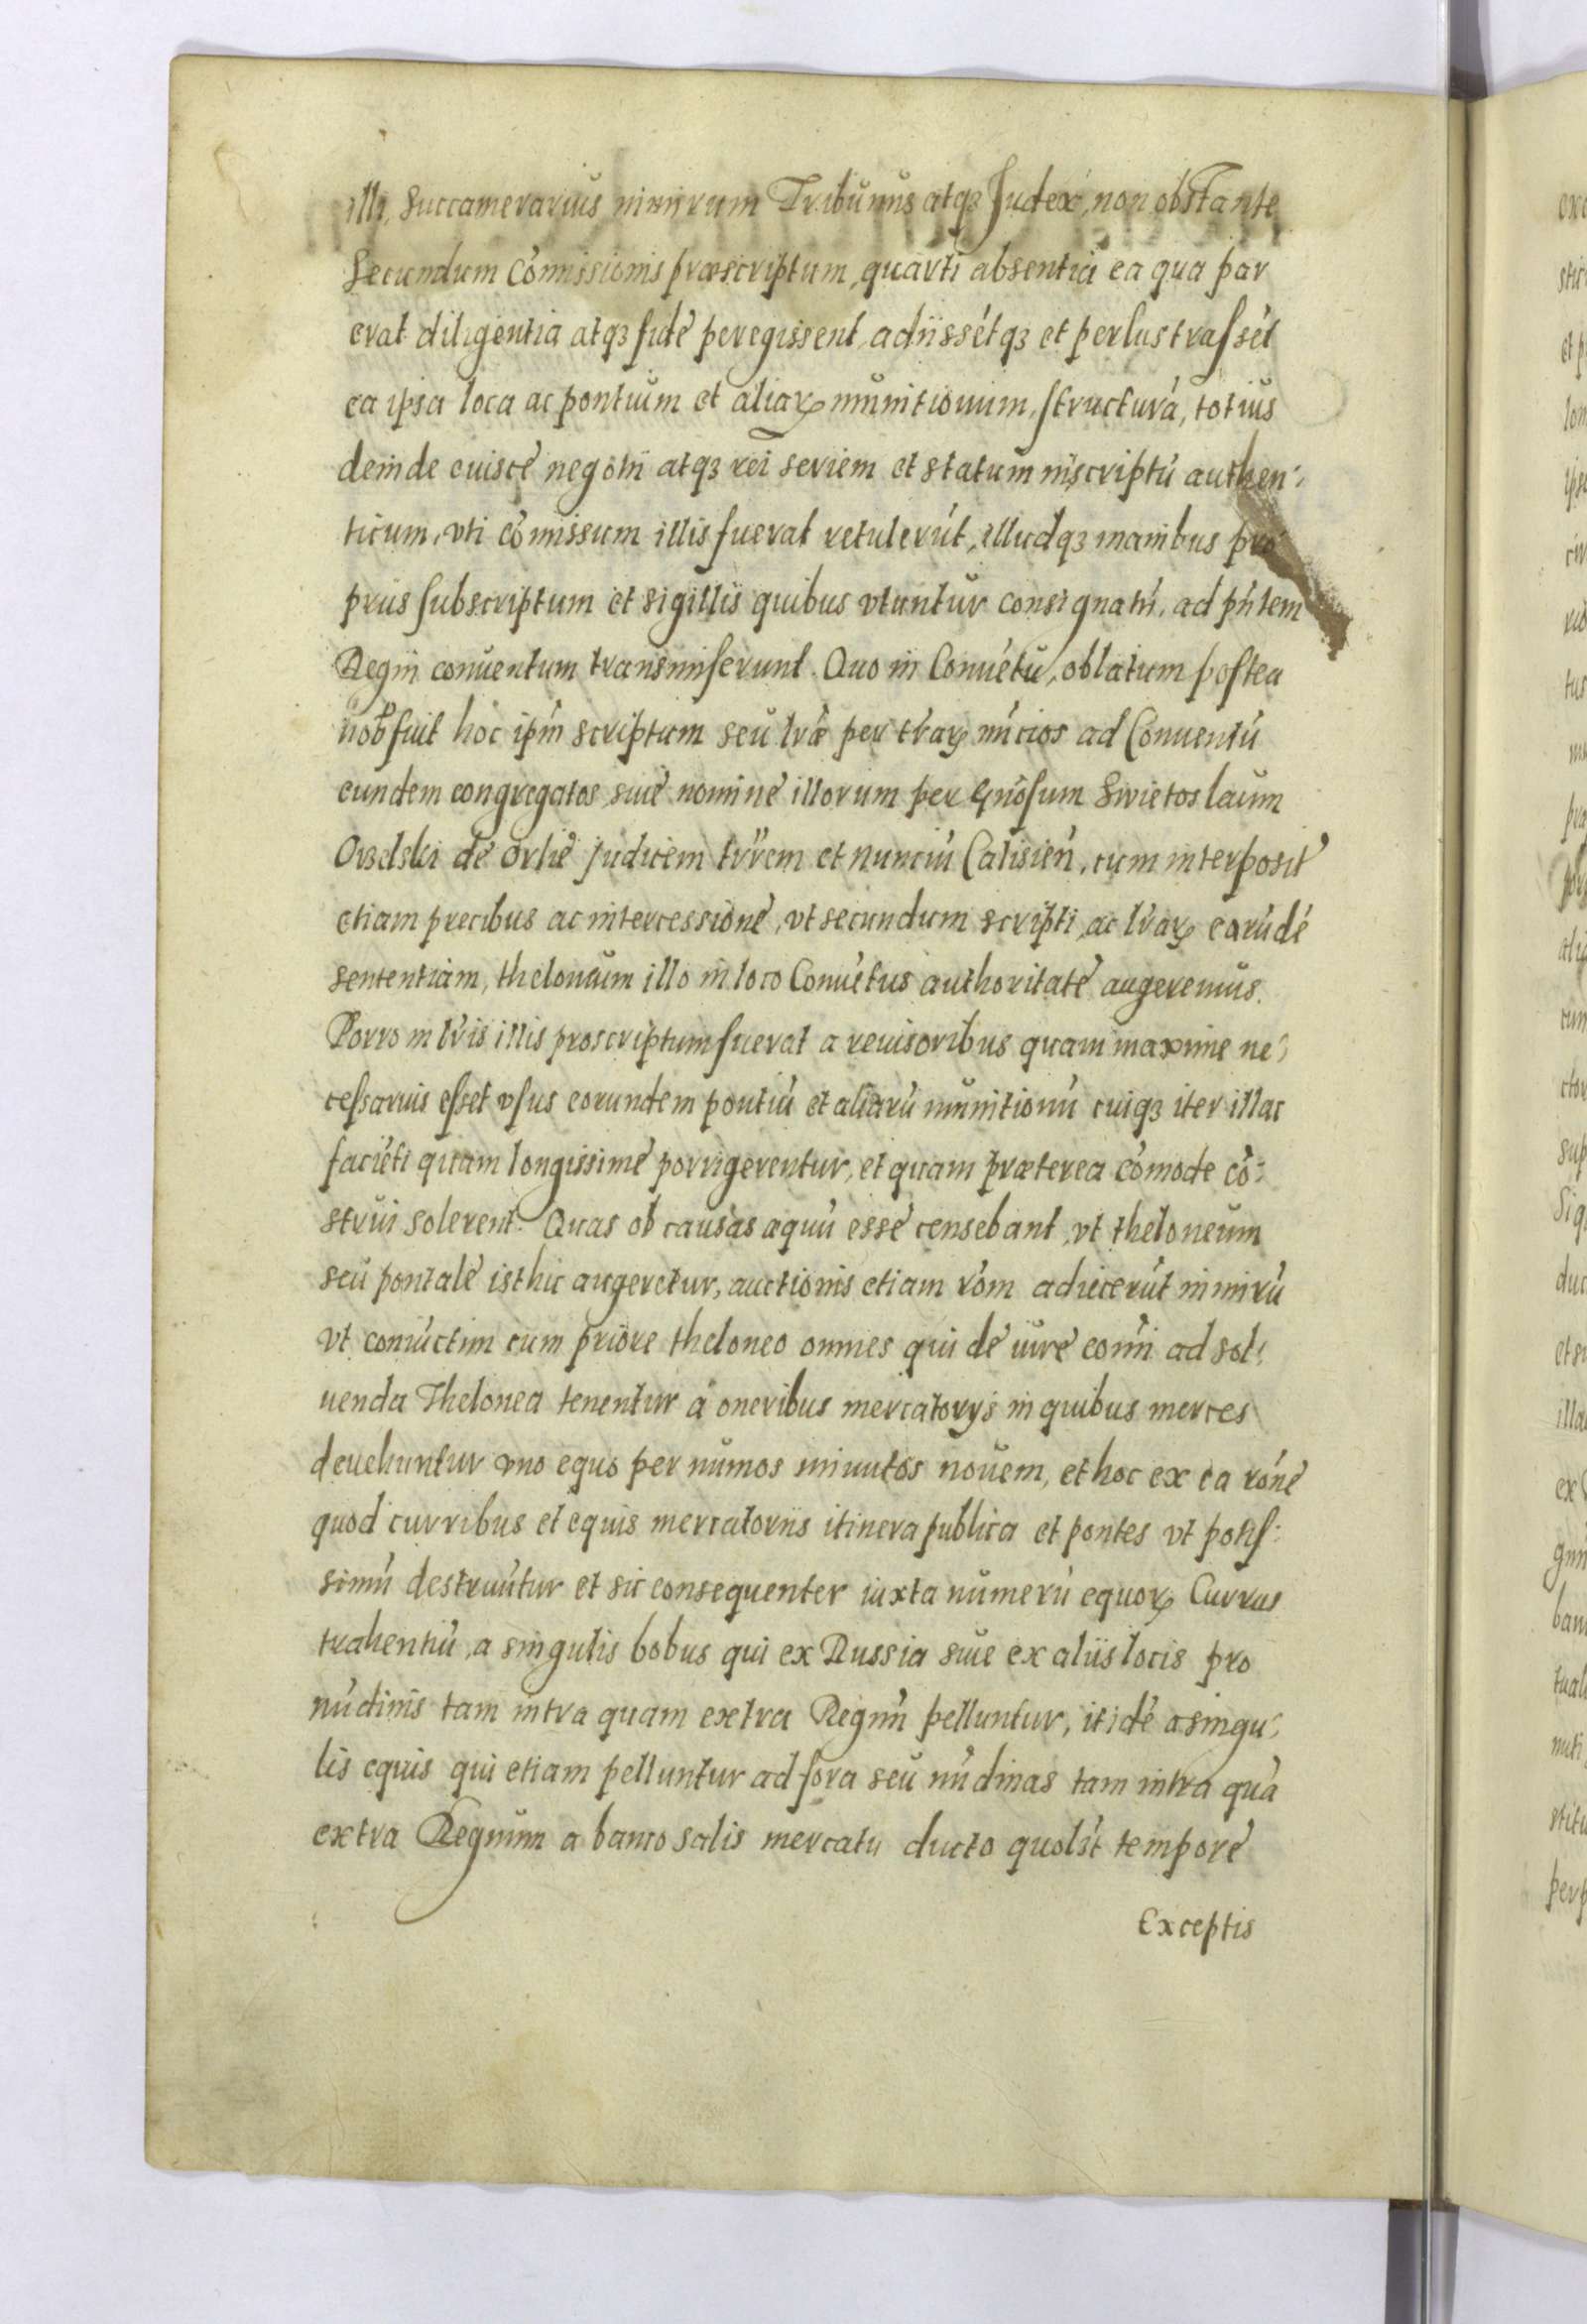 illi, Succamerarius nimirum Tribunus atqꝫ Judex, non obstante
Secundum Cōmissionis præscriptum, quarti absentia ea qua par
erat diligentia atqꝫ fide peregissent, adiissētqꝫ et perlustrassēt
ea ipsa loca ac pontium et aliaꝝ munitionum, structurā, totius
deinde cuiscē negotii atqꝫ rei seriem et statum in scriptū authen:
ticum, vti cōmissum illis fuerat retulerūt, illudqꝫ manibus pro
priis subscriptum et sigillis quibus vtuntur consignatū, ad pn̄tem
Regni conuentum transmiserunt. Quo in Conuētu, oblatum postea
nob fuit hoc ipm̄ scriptum seu lr̄æ per tr̄aꝝ nūcios ad Conuentū
eundem congregatos, siue nomine illorum per Gn̄osum Swietoslaum
Orzelski de Orlie Judicem trr̄em et nunciū Calisieñ, cum interposit
etiam precibus ac intercessione, vt secundum scripti, ac lr̄aꝝ earūdē
sententiam, theloneum illo in loco Conuētus authoritate augeremus.
Porro in lr̄is illis proscriptum fuerat a reuisoribus quam maxime ne:
cessarius esset vsus eorundem pontiū et aliarū munitionū cuiqꝫ iter illac
faciēti quam longissime porrigerentur, et quam præterea cōmode cō:
strui solerent. Quas ob causas æquū esse censebant, vt theloneum
seu pontale isthic augeretur, auctionis etiam rōm adiecerūt nimirū
vt coniūctim cum priore theloneo omnes qui de iure cōm̄i ad sol:
uenda Thelonea tenentur a oneribus mercatorys in quibus merces
deuehuntur vno equo per numos minutos nouem, et hoc ex ea rōne
quod curribus et equis mercatoriis itinera publica et pontes vt potis:
simū destruūtur et sic consequenter iuxta numerū equoꝝ Currus
trahentiū, a singulis bobus qui ex Russia siue ex aliis locis pro
nūdinis tam intra quam extra Regnū pelluntur, itidē a singu:
lis equis qui etiam pelluntur ad fora seu nūdinas tam intra quā
extra Regnum a banco salis mercatu ducto quolīt tempore
Exceptis